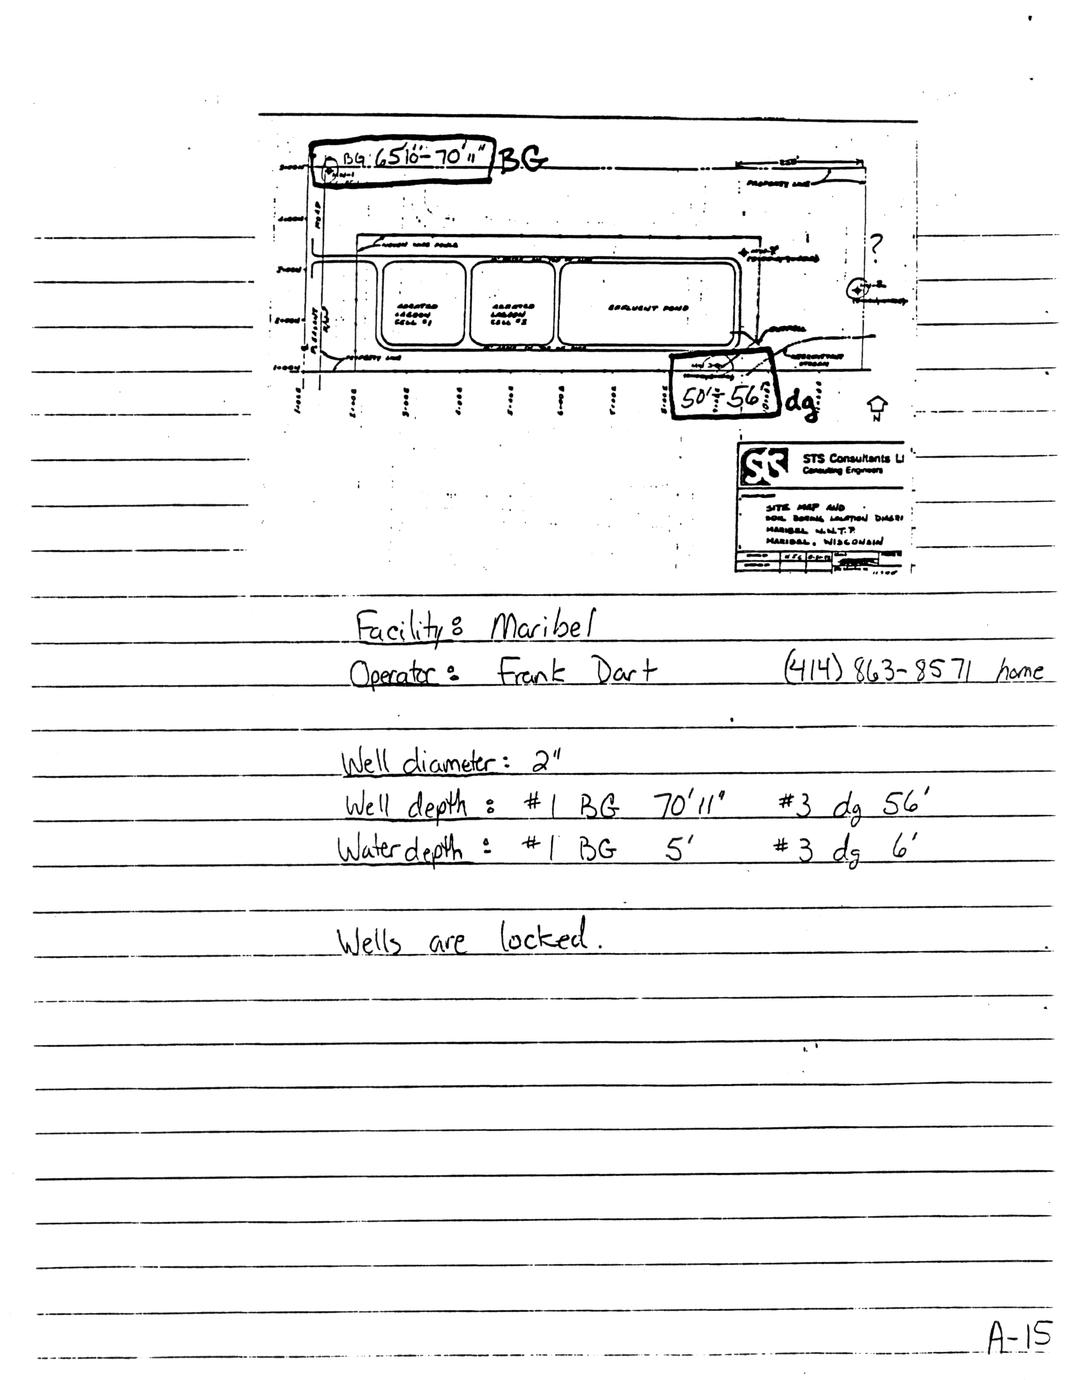 BG: 65'10"- 70'11" BG
250'
PROPERTY LINE
ROAD
?
WOVEN WIRE FENCE
W-2
AERATED
LAGOON
CELL #1
AERATED
LAGOON
CELL #2
EFFLUENT POND
PLEASANT
PROPERTY LINE
INTERMITTENT
STREAM
50'- 56' dg
N
STS STS Consultants Lt
Consulting Engineers
SITE MAP AND
SOIL BORING LOCATION DIAGR
MARIBEL W.W.T.P.
MARIBEL, WISCONSIN
Facility: Maribel
Operator: Frank Dart (414) 863-8571 home
Well diameter: 2"
Well depth: #1 BG 70'11" #3 dg 56'
Water depth: #1 BG 5' #3 dg 6'
Wells are locked.
A-15